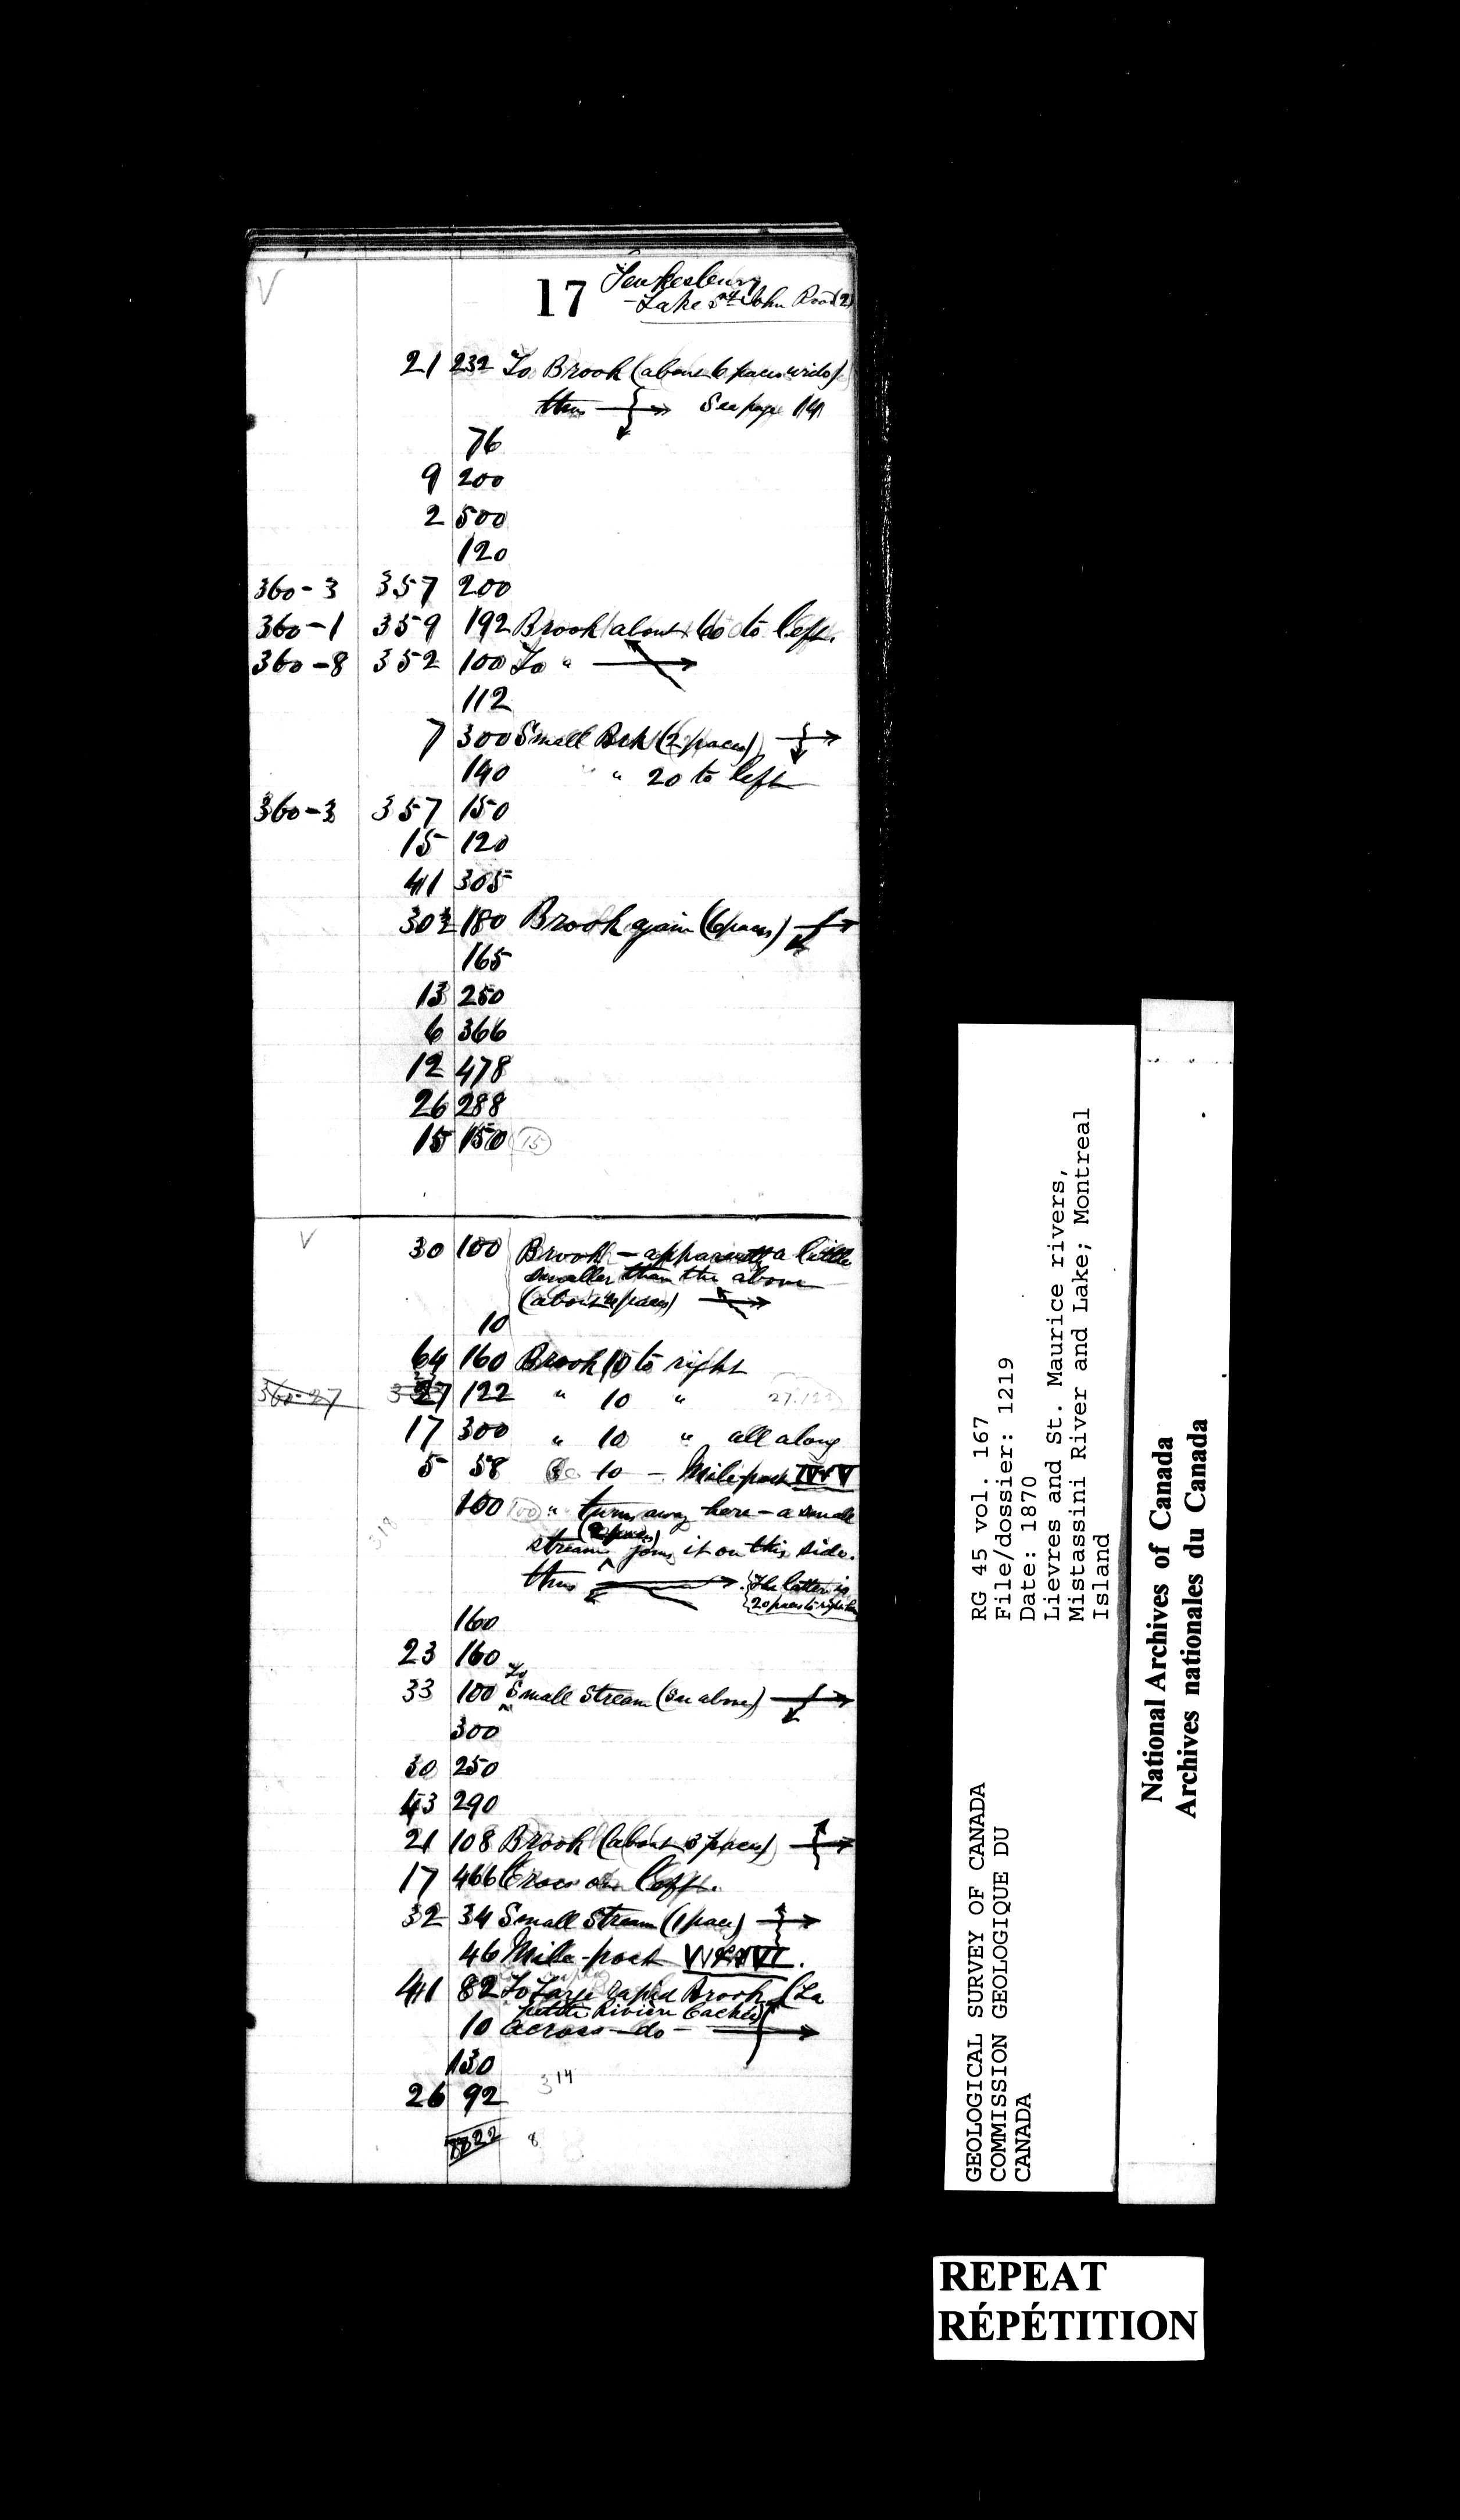 17 Tewkesbury
- Lake St John Road (2)
21 232 To Brook (about 6 paces wide)
thus See page 14
76
9 200
2 500
120
360-3 357 200
360-1 359 192 Brook about 60 to left.
360-8 352 100 To "
112
7 300 Small Brk (2 paces)
140 " 20 to left
360-3 357 150
15 120
41 305
302 180 Brook again (6 paces)
165
13 250
6 366
12 478
26 288
15 150 15
30 100 Brook - apparently a little
smaller than the above
(about paces)
10
64 160 Brook 10 to right
360-27 27 122 " 10 " 27.122
17 300 " 10 " all along
5 58 10 - Mile-post
100 100 " turns away here - a small
318
(2 paces)
stream joins it on this side.
thus The latter is
20 paces to right
160
23 160
33 100 To Small Stream (see above)
300
30 250
43 290
21 108 Brook (about 3 paces)
17 466 Cross on left.
32 34 Small Stream (1 pace)
46 Mile-post
41 82 To Large rapid Brook (La
petite Rivière Cachée)
10 across - do -
130
314
26 92
22 8
RG 45 vol. 167
File/dossier: 1219
Date: 1870
Lievres and St. Maurice rivers,
Mistassini River and Lake; Montreal
Island
GEOLOGICAL SURVEY OF CANADA
COMMISSION GEOLOGIQUE DU
CANADA
National Archives of Canada
Archives nationales du Canada
REPEAT
RÉPÉTITION